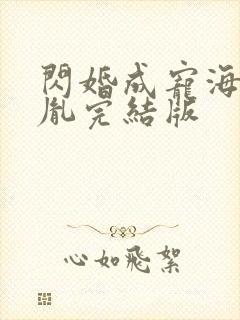 閃婚成寵海
胤完結版
心如飛絮